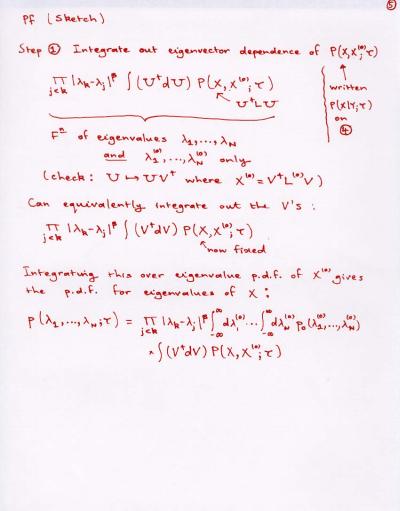 ⑤
Pf (Sketch)
Step ① Integrate out eigenvector dependence of P(X,X⁽⁰⁾;τ)
∏_{j<k} |λ_k-λ_j|^β ∫ (U†dU) P(X,X⁽⁰⁾;τ)
U†LU
written
P(X|Y;τ)
on
④
Fⁿ of eigenvalues λ₁,...,λ_N
and λ₁⁽⁰⁾,...,λ_N⁽⁰⁾ only
(check: U ↦ UV† where X⁽⁰⁾=V†L⁽⁰⁾V)
Can equivalently integrate out the V's:
∏_{j<k} |λ_k-λ_j|^β ∫ (V†dV) P(X,X⁽⁰⁾;τ)
now fixed
Integrating this over eigenvalue p.d.f. of X⁽⁰⁾ gives
the p.d.f. for eigenvalues of X:
p(λ₁,...,λ_N;τ) = ∏_{j<k} |λ_k-λ_j|^β ∫_{-∞}^{∞} dλ₁⁽⁰⁾ ... ∫_{-∞}^{∞} dλ_N⁽⁰⁾ p₀(λ₁⁽⁰⁾,...,λ_N⁽⁰⁾)
× ∫ (V†dV) P(X,X⁽⁰⁾;τ)